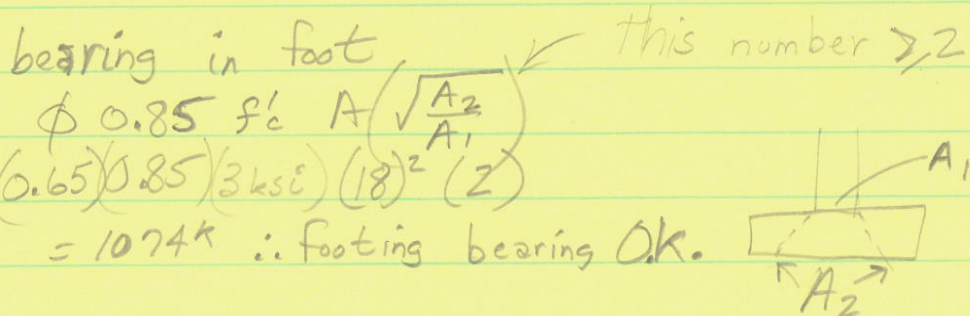 bearing in foot
this number ≥ 2
ϕ 0.85 f'c A (√(A2/A1))
(0.65)(0.85)(3ksi)(18)² (2)
= 1074ᵏ ∴ footing bearing O.K.
A1
A2